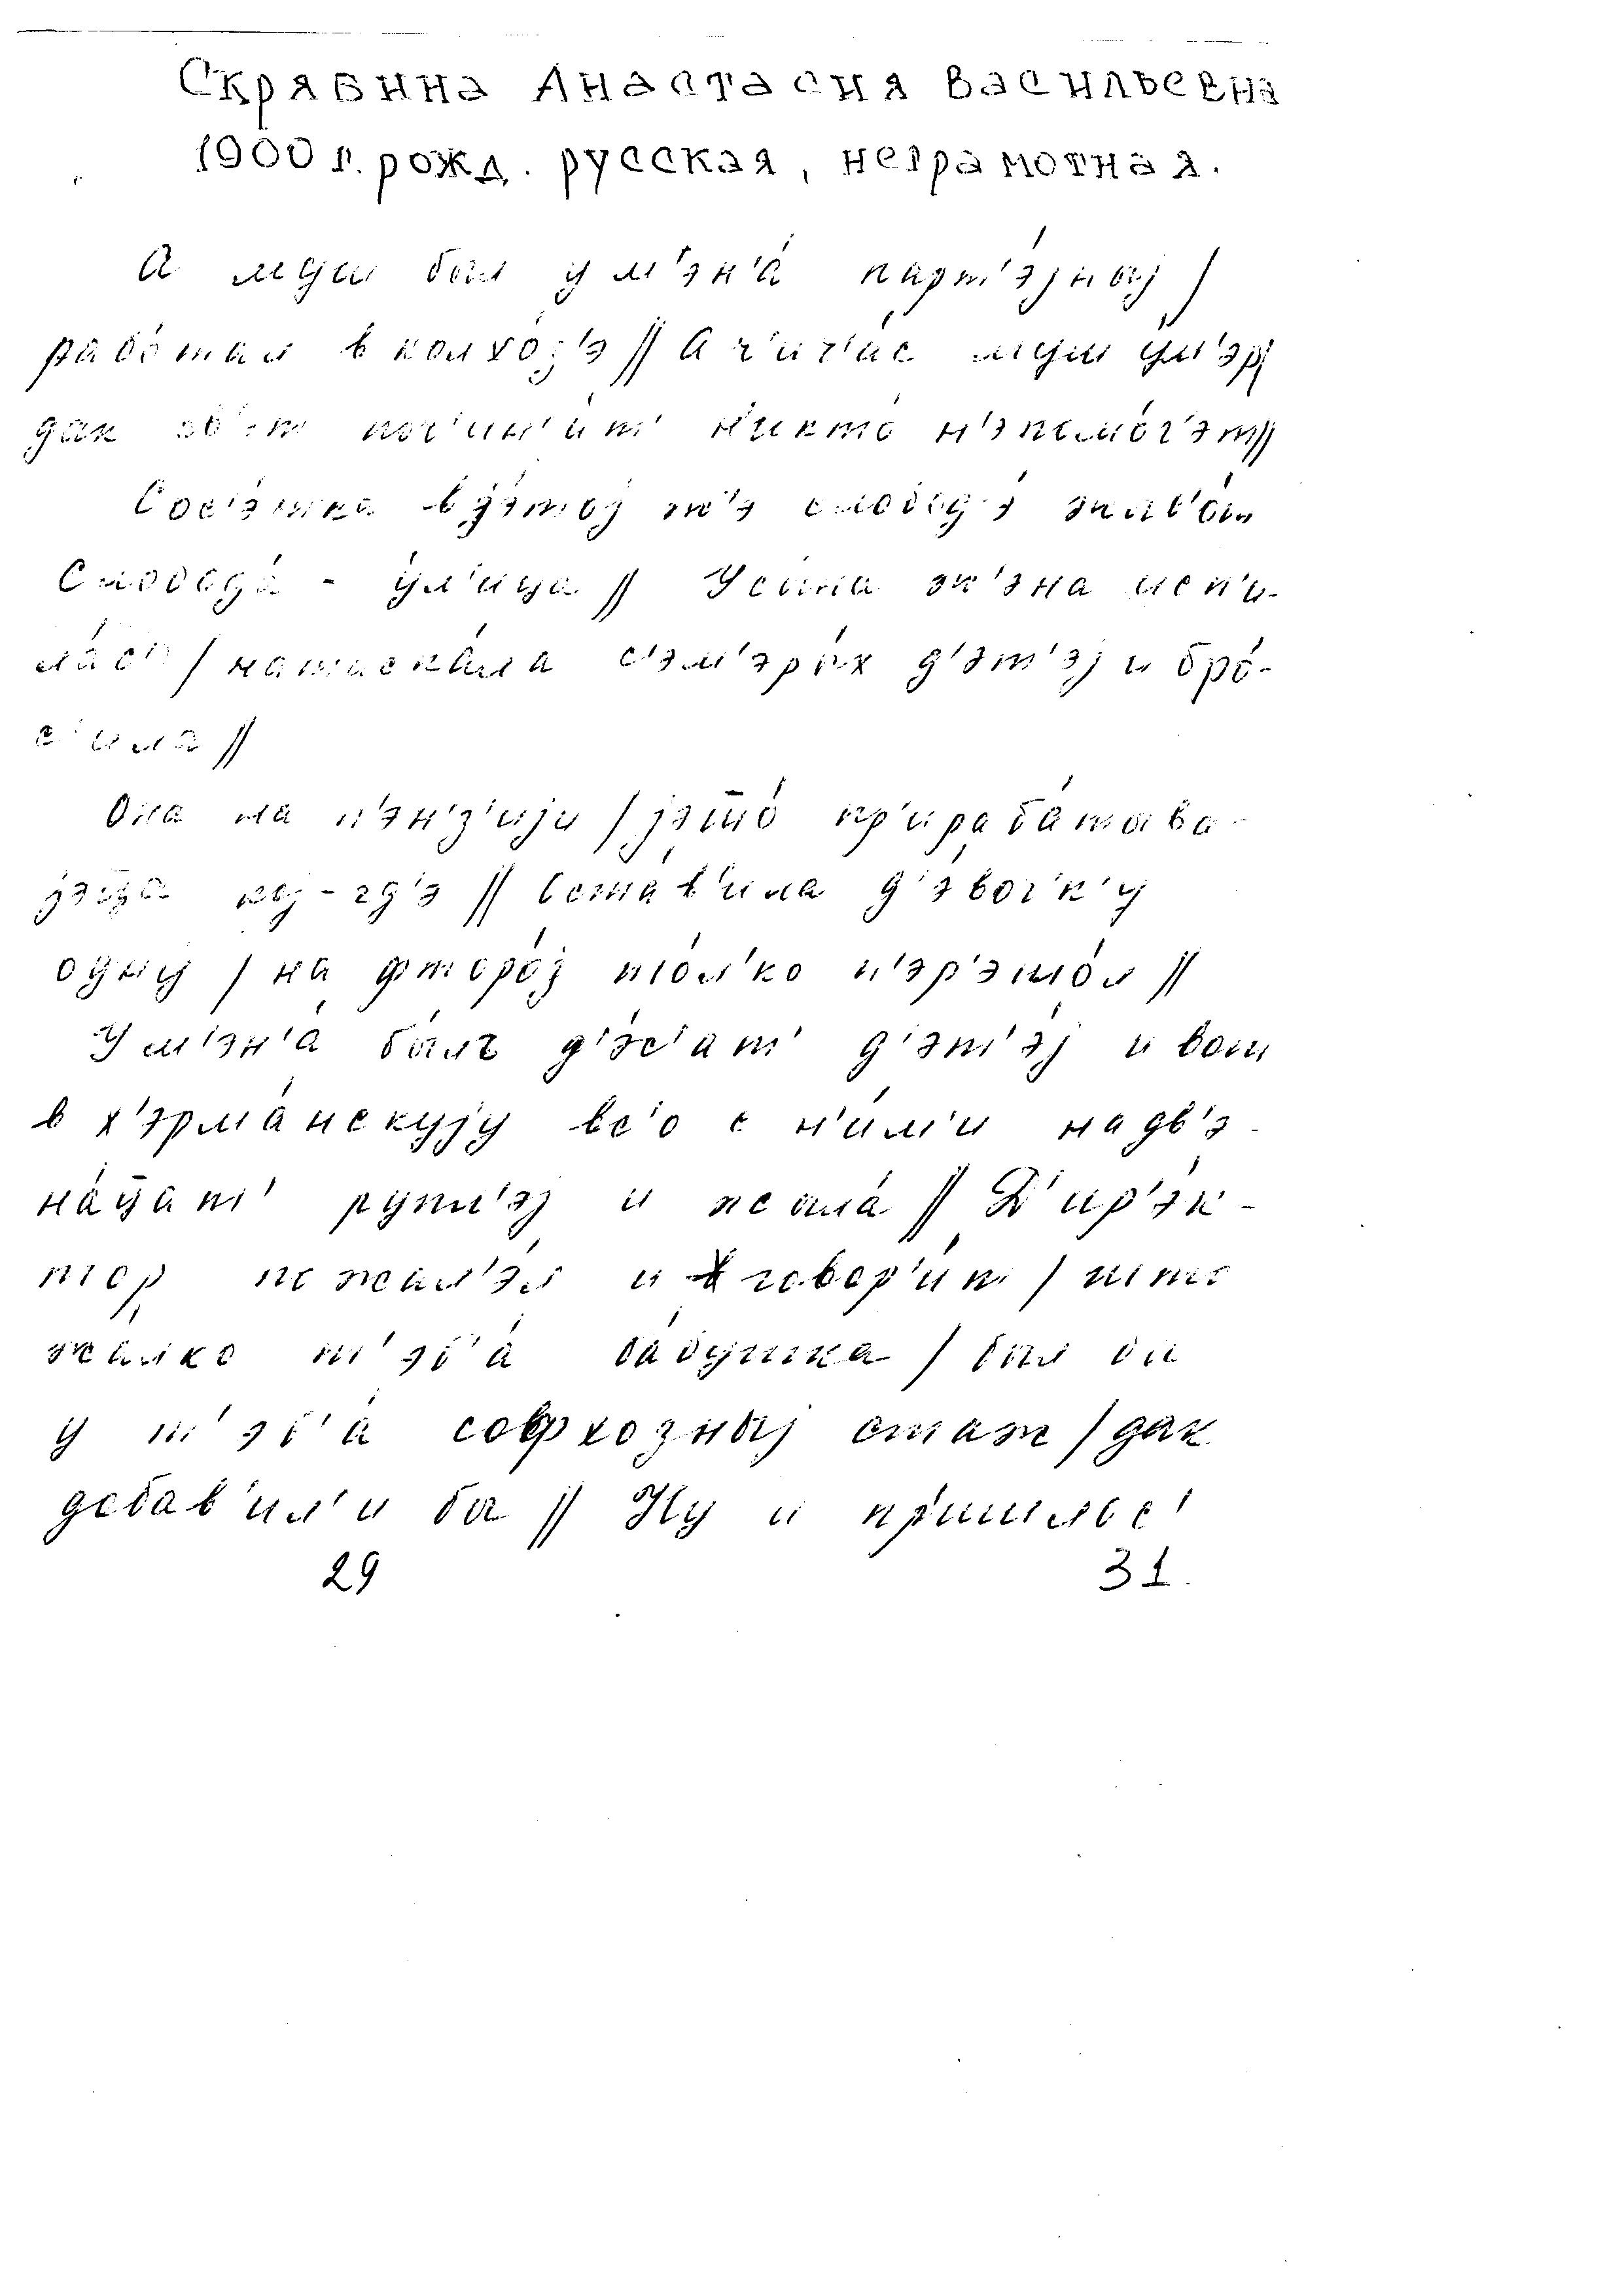 Скрябина Анастасия Васильевна
1900 г. рожд. русская, неграмотная.
А муш был у м'эн'а́ парт'э́јныј /
рабо́тал в колхо́з'э // А ч'ич'а́с муш у́м'эр/
дак св'эт поч'ин'и́т' н'икто́ н'эпомо́г'эт//
Сос'э́тка в э́тој ж'э слобод'э́
Слобода́ - у́л'ица // У сы́на ж'эна исп'и-
ла́с' / натаска́ла с'эм'эры́х д'эт'э́ј и бро́-
с'ила //
Она на п'э́нз'ији / јэшто́ пр'ираба́тыва-
јэца кој-гд'э // Оста́в'ила д'э́воч'к'у
одну / на фторо́ј то́л'ко п'эр'эшо́л //
У м'эн'а́ бы́лъ д'э́с'ат' д'эт'э́ј и вот
в х'эрма́нскују вс'о с н'и́м'и на дв'э-
на́цат' рупл'эј и жыла́ // Д'ир'э́к-
тор пожал'э́л и говор'и́т / што
жалко т'эб'а́ ба́бушка / был бы
у т'эб'а́ совфхозныј стаж / дак
добав'ил'и бы // Ну и пр'ишлос'
29 31.